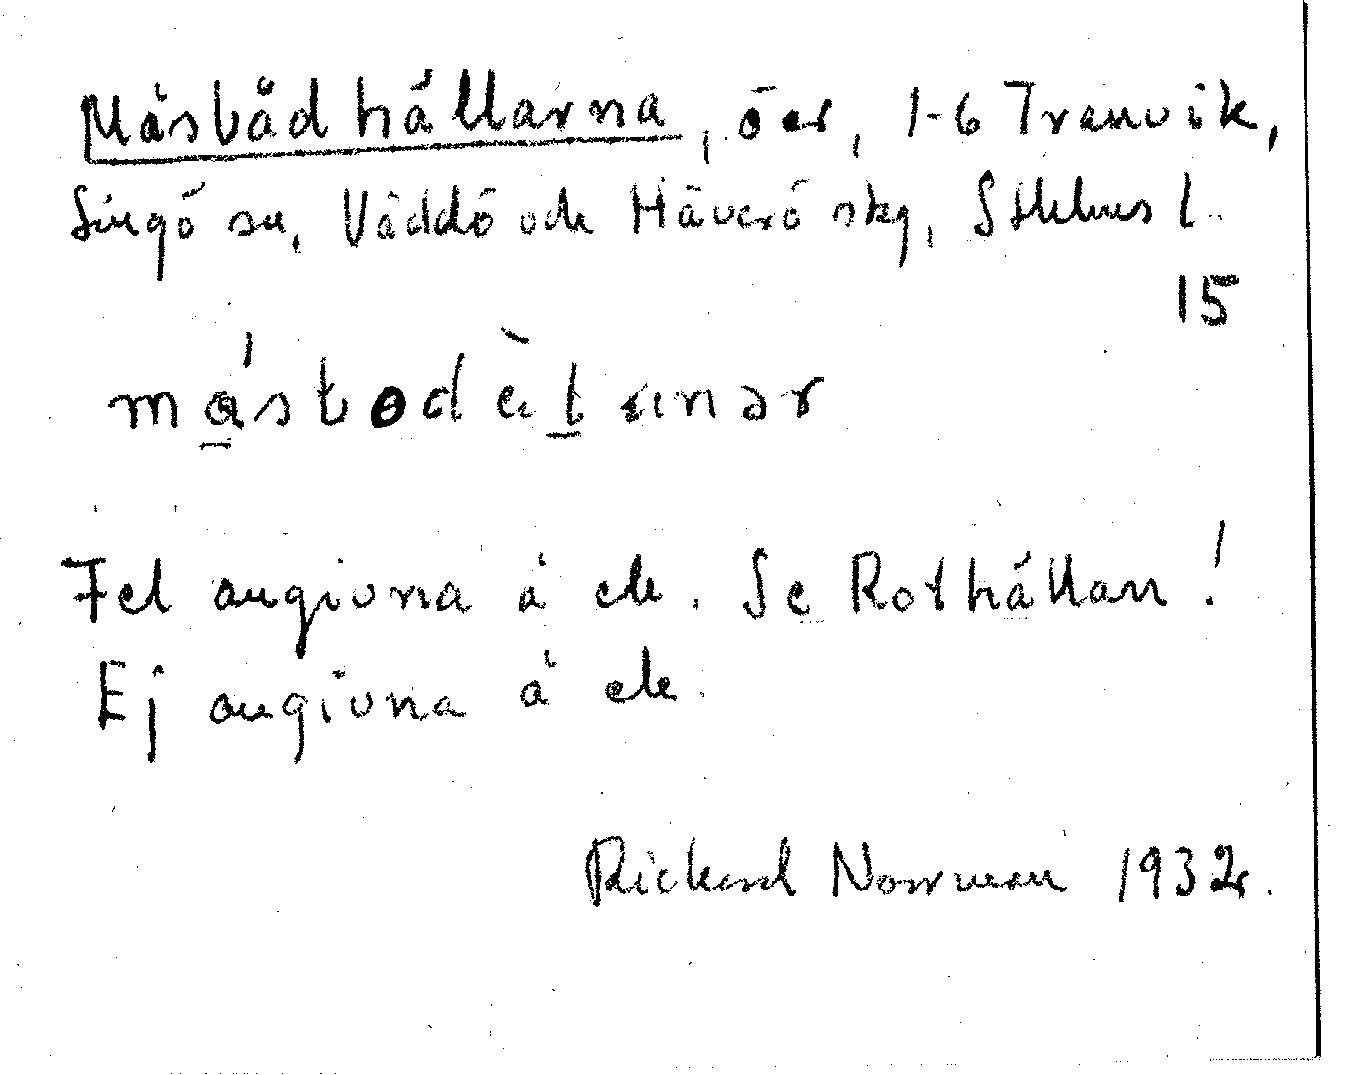 Måsbådhällarna, öar, 1-6 Tranvik,
Singö sn, Väddö och Häverö skg, Sthlms l.
15
Fel angivna å ek. Se Rothällan!
Ej angivna å ek.
Rickard Norrman 1932.